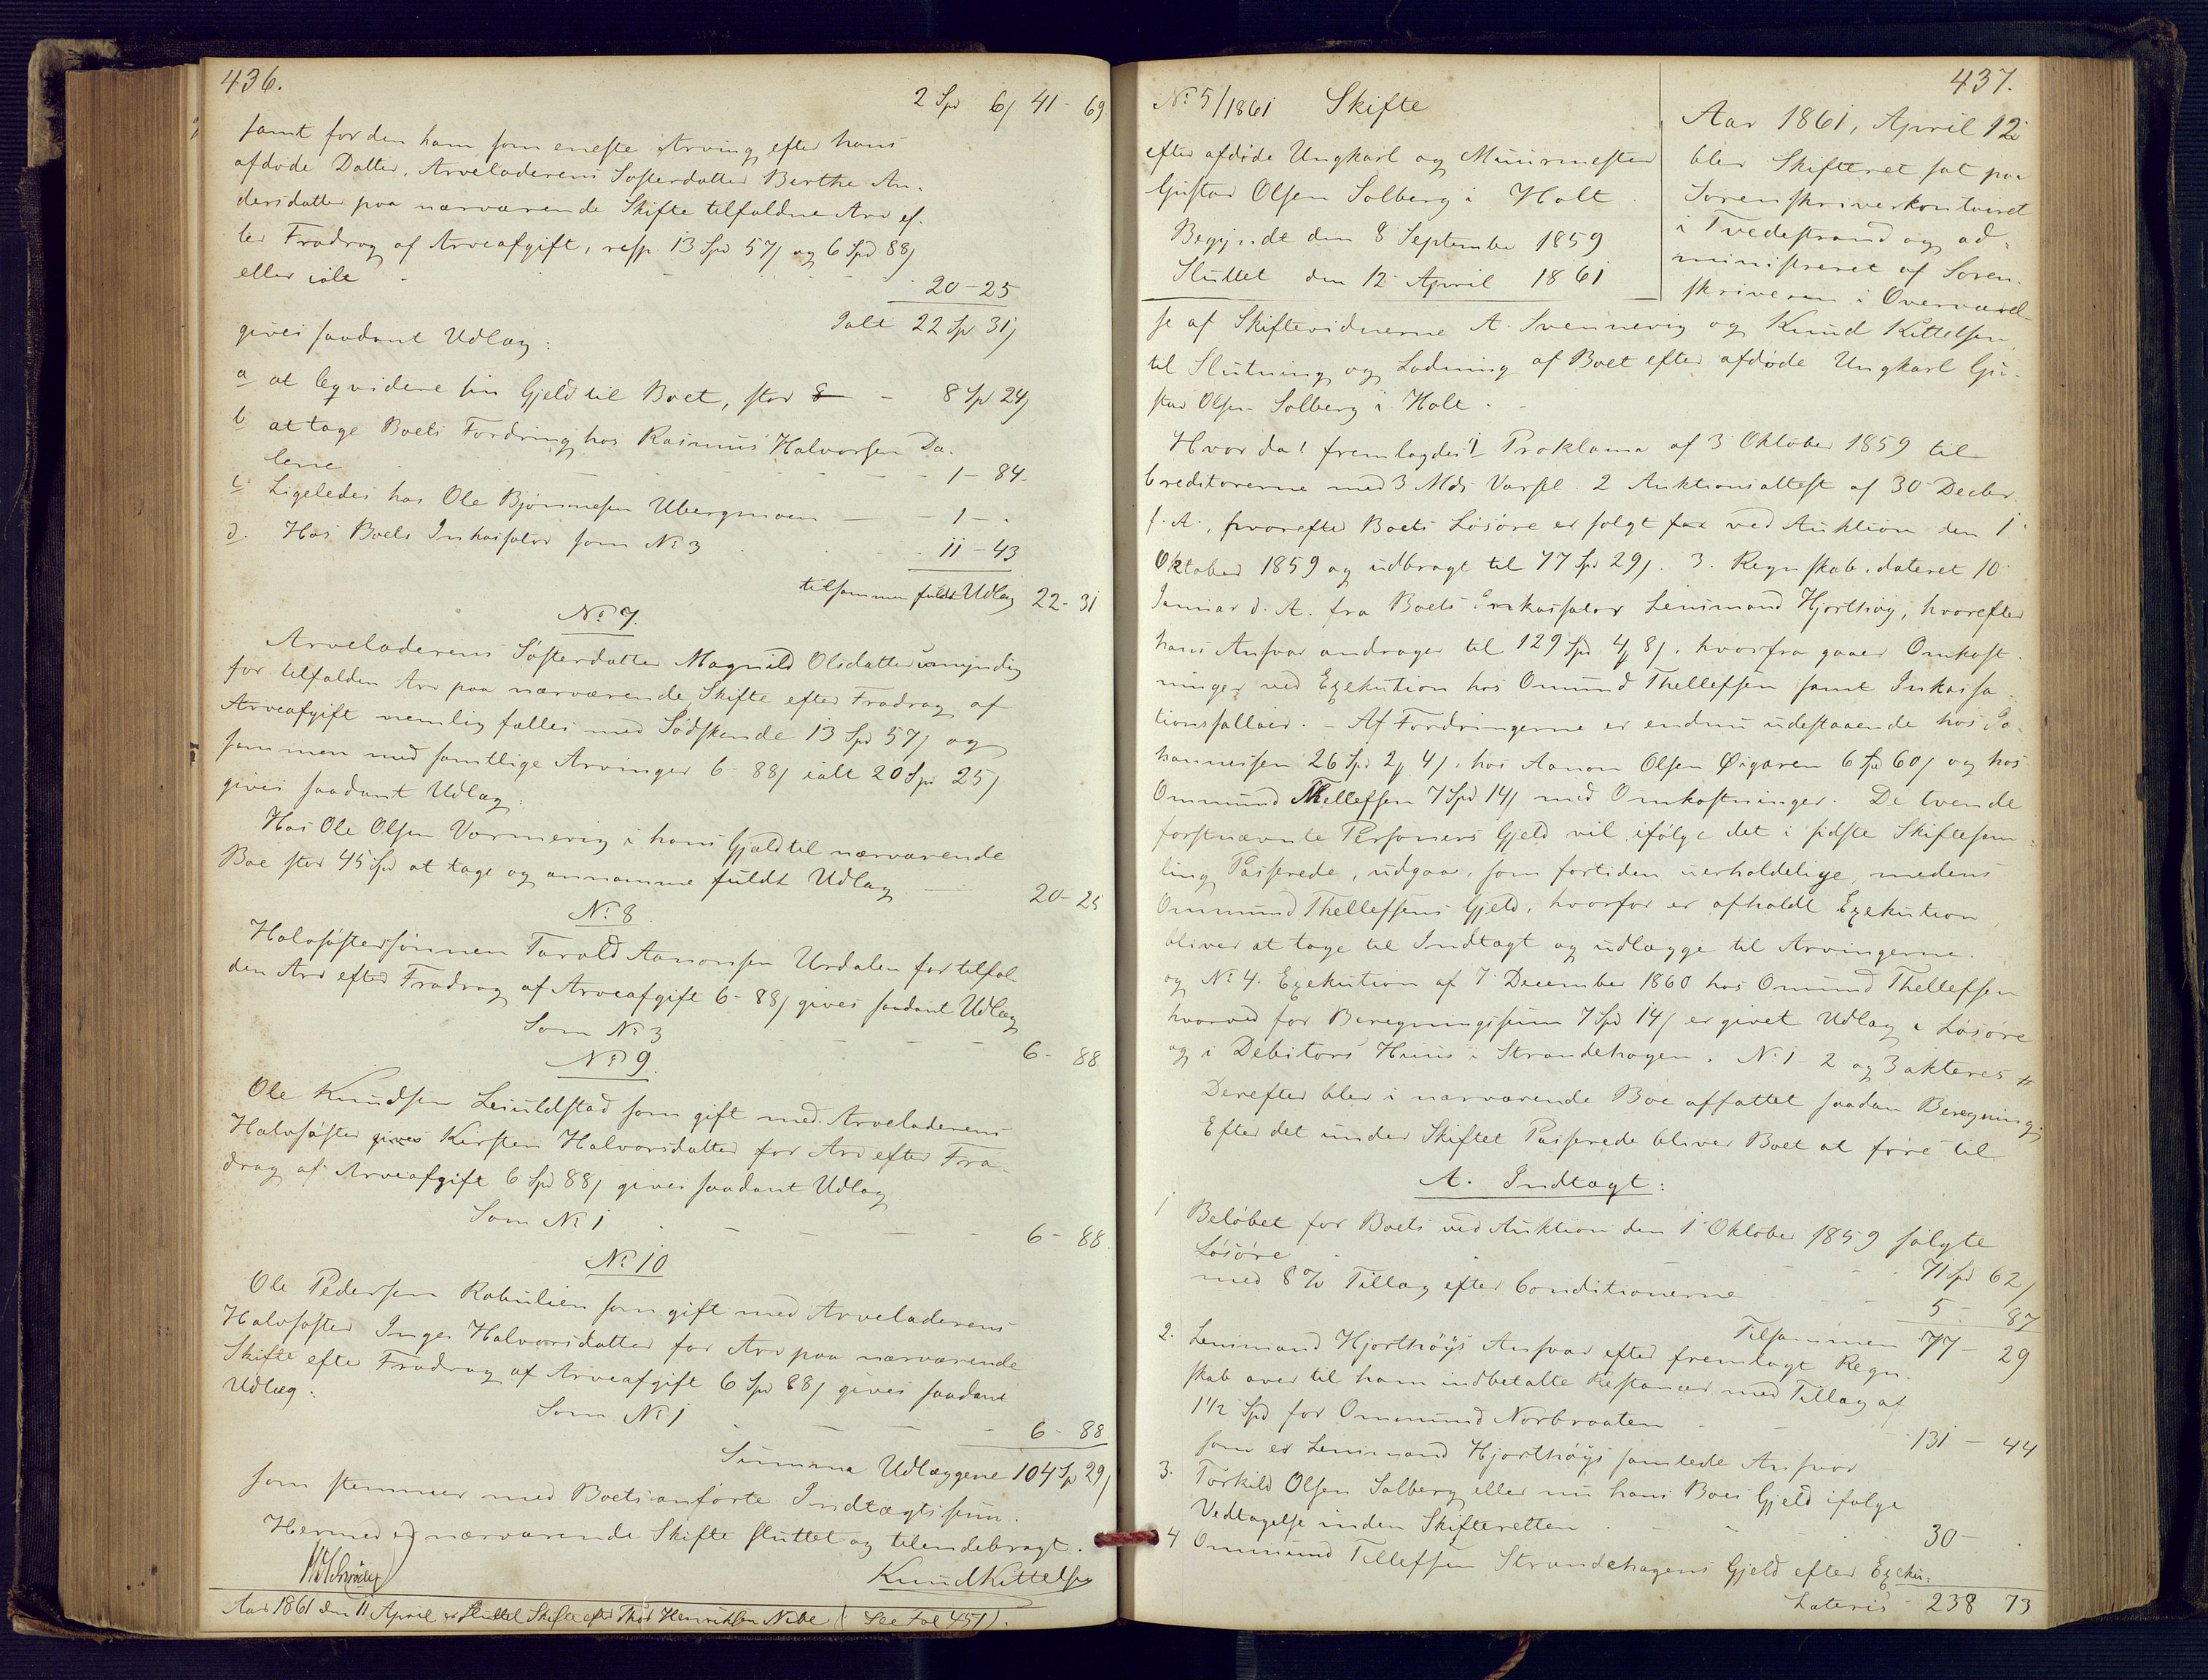 436.
2 Spd 6/ 41 - 69
samt for den ham som eneste Arving efter hans
afdøde Datter, Arveladerens Søsterdatter Berthe An-
dersdatter paa nærværende Skifte tilfaldne Arv ef-
ter Fradrag af Arveafgift, resp. 13 Spd 57/ og 6 Spd 88/
eller ialt - 20 - 25
Ialt 22 Spd 31/
gives saadant Udlæg:
a at liqvidere sin Gjeld til Boet, stor - 8 Spd 24/
b at tage Boets Fordring hos Rasmus Halvorsen Da-
lene - 1 - 84.
c Ligeledes hos Ole Bjørnnesen Ubergmoen - 1 - .
d. Hos Boets Inkassator som No 3 . . 11 - 43
tilsammen fuldt Udlæg 22 - 31
No 7.
Arveladerens Søsterdatter Magnild Olsdatter umyndig
for tilfalden Arv paa nærværende Skifte efter Fradrag af
Arveafgift nemlig fælles med Sødskende 13 Spd 57/ og
sammen med samtlige Arvinger 6 - 88/ ialt 20 Spd 25/
gives saadant Udlæg:
Hos Ole Olsen Varmevig i hans Gjæld til nærværende
Boe stor 45 Spd at tage og annamme fuldt Udlæg - 20 - 25
No 8.
Halvsøstersønnen Tarald Aanonsen Urdalen for tilfal-
den Arv efter Fradrag af Arveafgift 6 - 88/ gives saadant Udlæg
Som No 3 - 6 - 88
No 9.
Ole Knudsen Leiuldstad som gift med Arveladerens
Halvsøster Kirsten Halvorsdatter for Arv efter Fra-
drag af Arveafgift 6 Spd 88/ gives saadant Udlæg
Som No 1 - 6 - 88.
No 10
Ole Pedersen Robulien som gift med Arveladerens
Halvsøster Inger Halvorsdatter for Arv paa nærværende
Skifte efter Fradrag af Arveafgift 6 Spd 88/ gives saadant
Udlæg:
Som No 1 - 6 - 88
Summa Udlæggene 104 Spd 29/
som stemmer med Boets anførte Indtægtssum.
Hermed er nærværende Skifte sluttet og tilendebragt.
Knud Kittelsen
Aar 1861 den 11 April er sluttet Skifte efter Thor Henriksen Nebe (See Fol 451).
437.
No 5/1861 Skifte
efter afdøde Ungkarl og Muurmester
Gustav Olsen Solberg i Holt.
Begyndt den 8 September 1859
Sluttet den 12 April 1861
Aar 1861, April 12
blev Skifteret sat paa
Sorenskriverkontoiret
i Tvedestrand og ad-
ministreret af Soren-
skriveren i Overværel-
se af Skiftevidnerne A. Svennevig og Knud Kittelsen
til Slutning og Lodning af Boet efter afdøde Ungkarl Gu-
stav Olsen Solberg i Holt.
Hvorda! fremlagdes 1 Proklama af 3 Oktober 1859 til
Creditorerne med 3 Mds Varsel. 2 Auktionsattest af 30 Decber
f. A., hvorefter Boets Løsøre er solgt ved Auktion den 1
Oktober 1859 og udbragt til 77 Spd 29/. 3. Regnskab, dateret 10
Januar d. A. fra Boets Inkassator Lensmand Hjorthøy, hvorefter
hans Ansvar andrager til 129 Spd 4 8/, hvorfra gaaer Omkost-
ninger ved Exekution hos Omund Thellefsen samt Inkassa-
tionssallær. - Af Fordringerne er endnu udestaaende hos Jo-
hannessen 26 Spd 2 4/, hos Aanon Olsen Øigaren 6 Spd 60/ og hos
Ommund Thellefsen 7 Spd 14/ med Omkostninger. De tvende
førstnævnte Personers Gjeld vil ifølge det i sidste Skiftesam-
ling Passerede, udgaa, som fortiden uerholdelige, medens
Ommund Thellefsens Gjeld, hvorfor er afholdt Exekution
bliver at tage til Indtægt og udlægge til Arvingerne.
og No 4. Exekution af 7 December 1860 hos Omund Thellefsen
hvorved for Beregningssum 7 Spd 14/ er givet Udlæg i Løsøre
og i Debitors Huus i Strandehagen. No 1 - 2 og 3 akteres
Derefter blev i nærværende Boe affattet saadan Beregning:
Efter det under Skiftet Passerede bliver Boet at føre til
A. Indtægt:
1 Beløbet for Boets ved Auktion den 1 Oktober 1859 solgte
Løsøre - 71 Spd 62/
med 8 % Tillæg efter Conditionerne - 5 - 87
Tilsammen 77 - 29
2. Lensmand Hjorthøys Ansvar efter fremlagt Regn-
skab over til ham indbetalte Restancer med Tillæg af
1 1/2 Spd for Ommund Norbraaten - 131 - 44
som er Lensmand Hjorthøys samlede Ansvar
3. Torkild Olsen Solberg eller nu hans Boes Gjeld ifølge
Vedtagelse inden Skifteretten - 30 - .
4 Ommund Tellefsen Strandehagens Gjeld efter Exeku-
Lateris 238 73